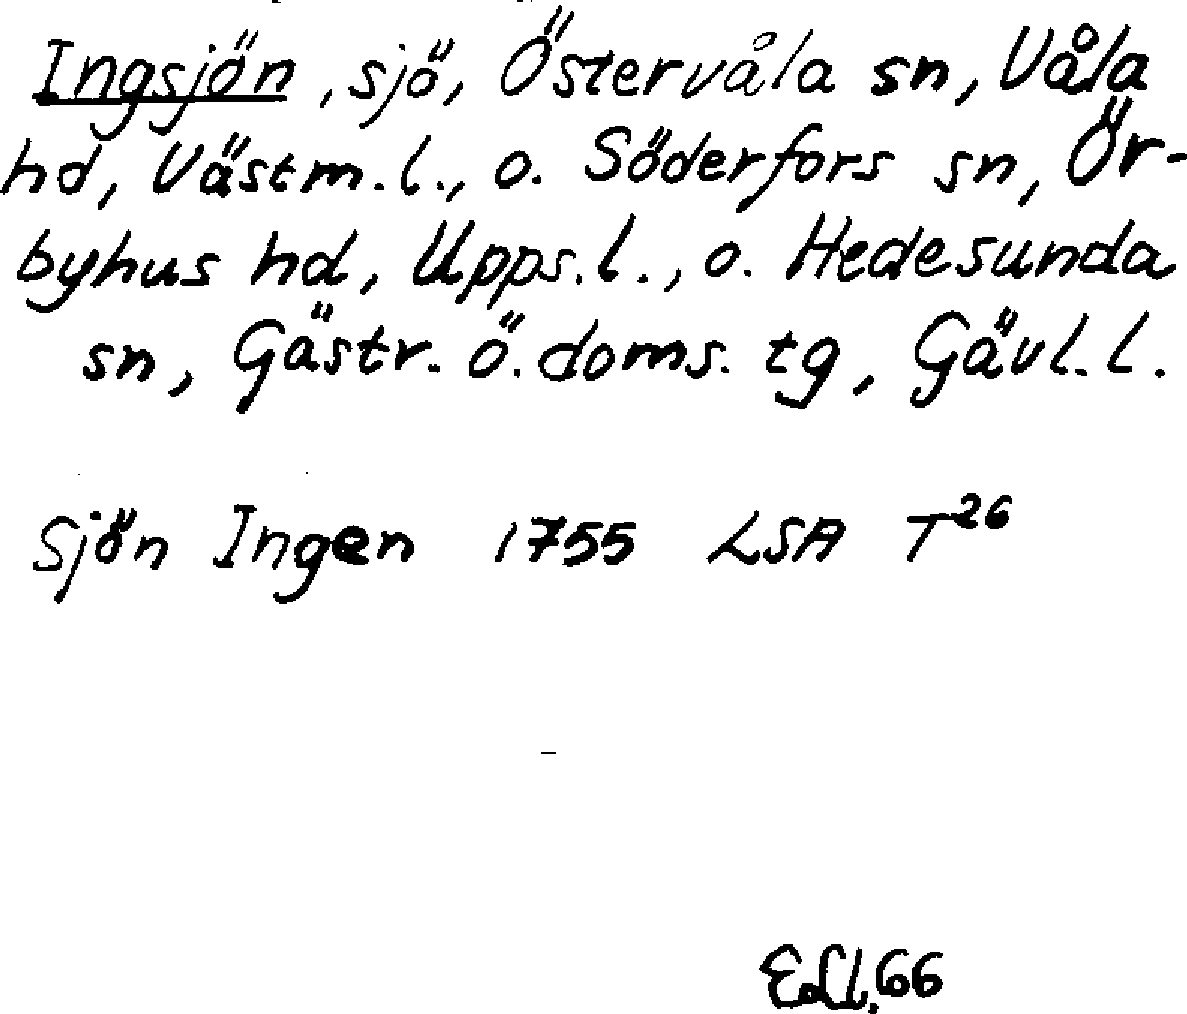 Ingsjön, sjö, Östervåla sn, Våla
hd, Västm. l., o. Söderfors sn, Ör-
byhus hd, Upps. l., o. Hedesunda
sn, Gästr. ö. doms. tg, Gävl. l.
Sjön Ingen 1755 LSA T26
66